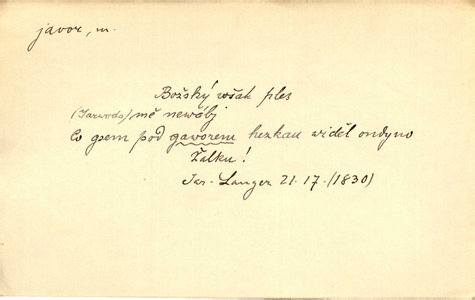 javor, m.
Božský wšak ples
(Jarwods) mě newábj
Co gsem pod gaworem hezkau widěl ondyno
Žalku!
Jar. Langer 21.17. (1830)